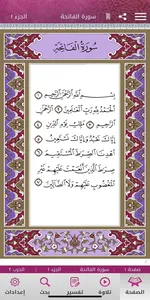 سورة الفاتحة
الجزء ١
سُورَةُ الفَاتِحَةِ
بِسْمِ اللَّهِ الرَّحْمَٰنِ الرَّحِيمِ ١
الْحَمْدُ لِلَّهِ رَبِّ الْعَالَمِينَ ٢ الرَّحْمَٰنِ
الرَّحِيمِ ٣ مَالِكِ يَوْمِ الدِّينِ ٤
إِيَّاكَ نَعْبُدُ وَإِيَّاكَ نَسْتَعِينُ ٥
اهْدِنَا الصِّرَاطَ الْمُسْتَقِيمَ ٦
صِرَاطَ الَّذِينَ أَنْعَمْتَ عَلَيْهِمْ غَيْرِ
الْمَغْضُوبِ عَلَيْهِمْ وَلَا الضَّالِّينَ ٧
صفحة ١
سورة الفاتحة
الجزء ١
الصفحة
تلاوة
تفسير
بحث
إعدادات